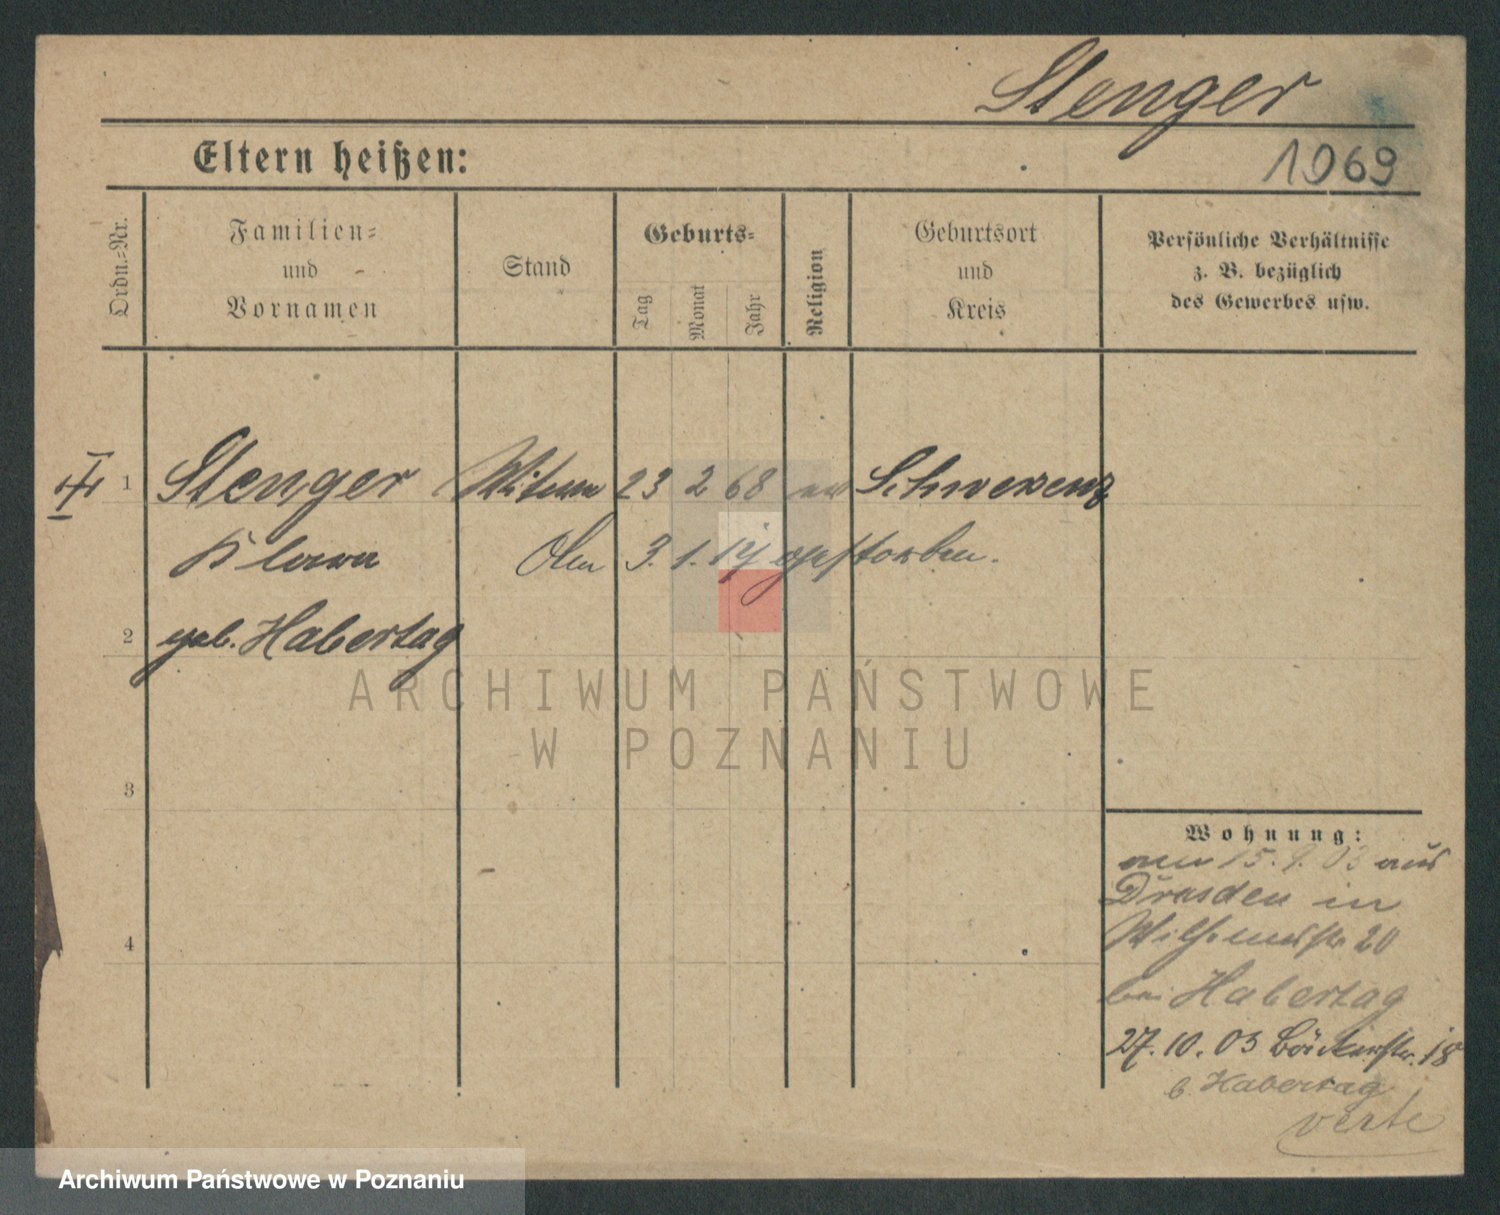 Stenger
Eltern heißen:
1069
Ordn.=Nr.
Familien=
und
Vornamen
Stand
Geburts=
Tag
Monat
Jahr
Religion
Geburtsort
und
Kreis
Persönliche Verhältnisse
z. B. bezüglich
des Gewerbes usw.
1 Stenger 23 2 68 Schwersenz
3. 1. gestorben.
2 geb. Habertag
3
4
Wohnung:
am 15. 9. 03 aus
Dresden in
Wilhelmstr 20
bei Habertag
27. 10. 03 Bäckerstr. 18
b. Habertag
verte
ARCHIWUM PAŃSTWOWE
W POZNANIU
Archiwum Państwowe w Poznaniu